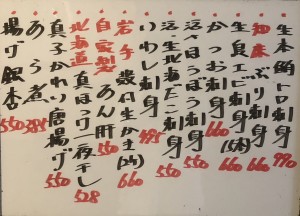 生本鮪トロ刺身 990
知床 ぶり刺身 660
生真エビ刺身(5本) 660
かつお刺身 660
ほうぼう刺身 550
活〆生北海だこ刺身 550
いわし刺身 495
岩手 殻付生かき(2ケ) 660
自家製 あん肝 550
北海道 真ほっけ一夜干し 528
真子かれい唐揚げ 550
あら煮 385
揚げ銀杏 550